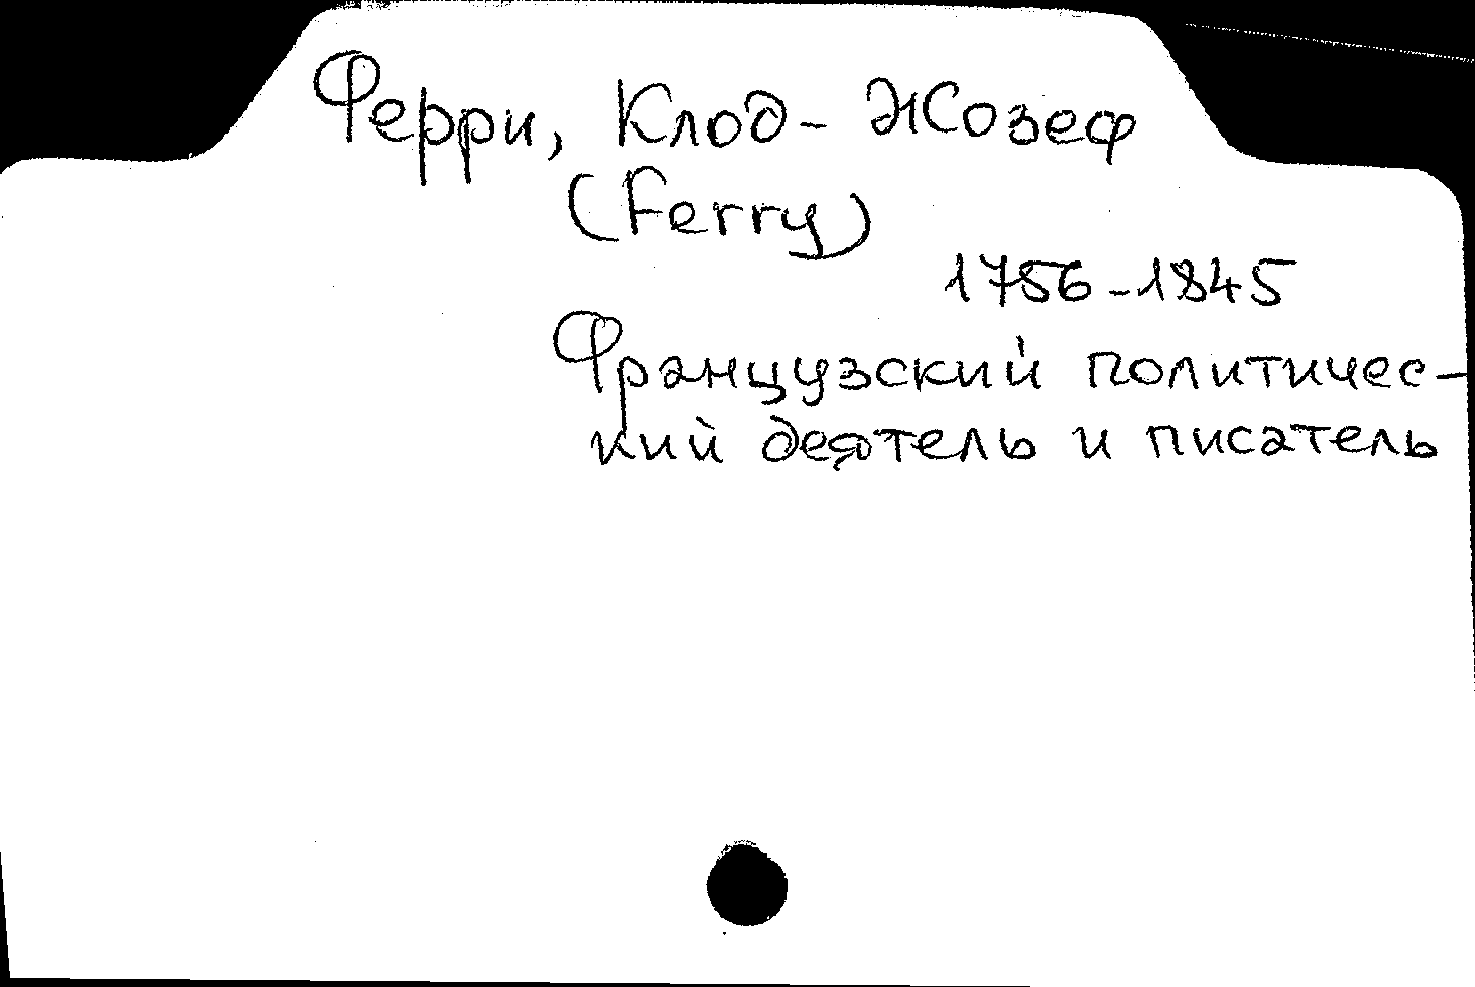 Ферри, Клод-Жозеф
(Ferry)
1756-1845
Французский политичес-
кий деятель и писатель